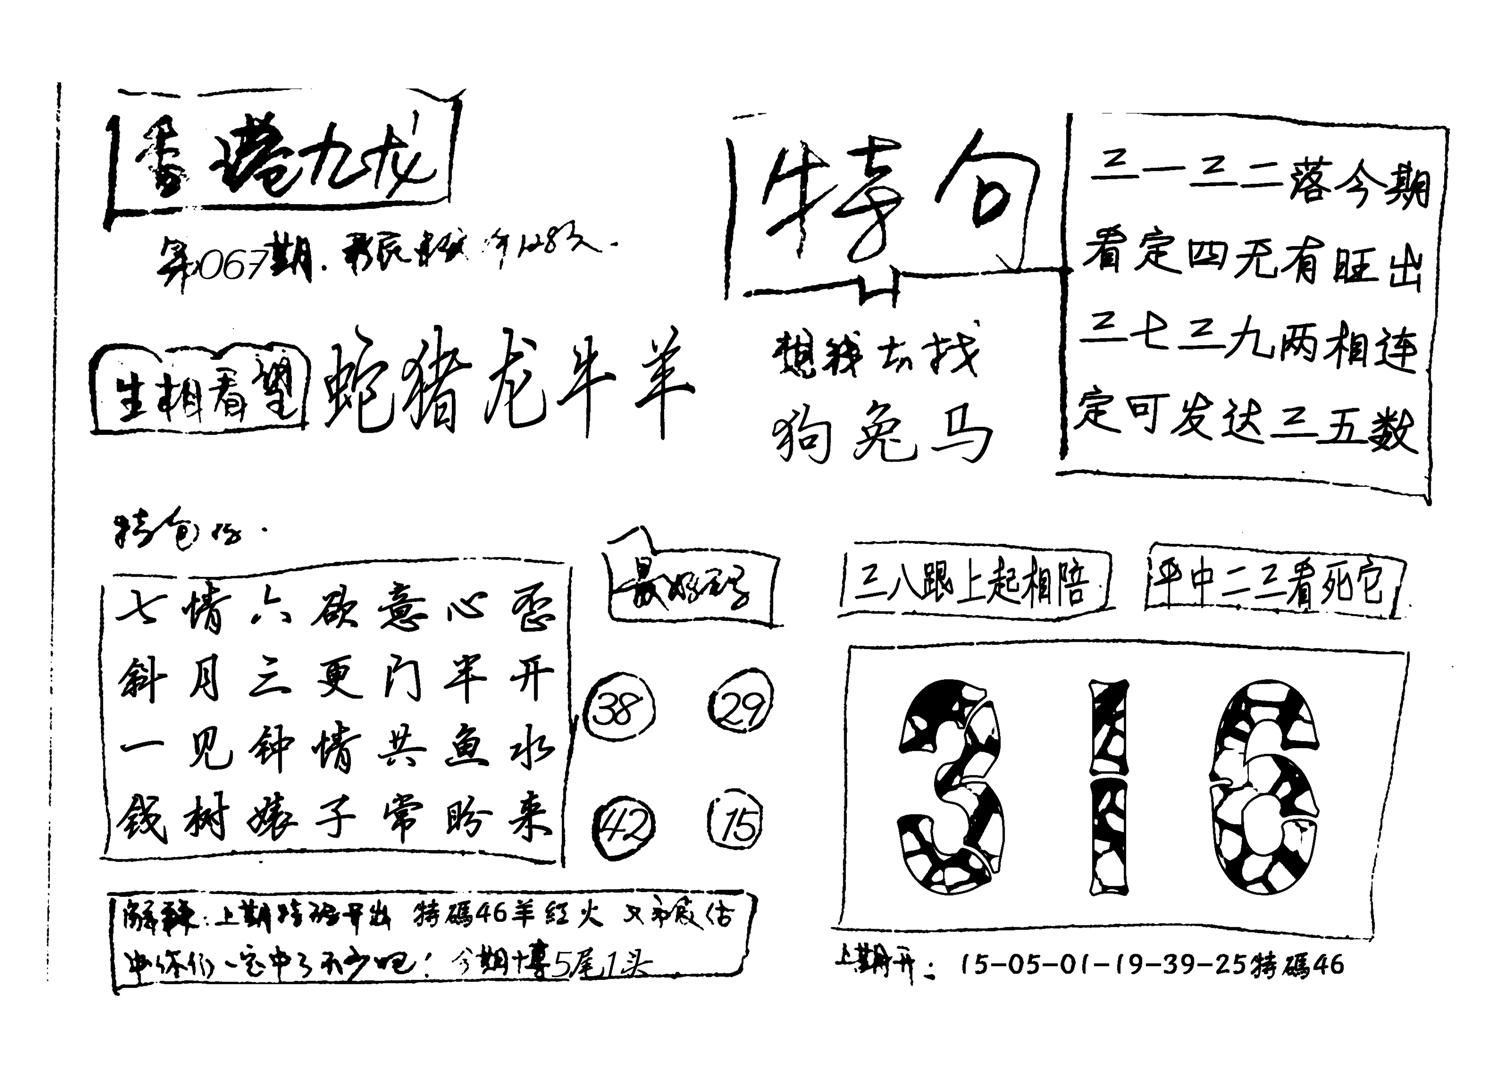 香港九龙
第067期.
生相看望
蛇猪龙牛羊
特句
想钱去找
狗兔马
三一三二落今期
看定四无有旺出
三七三九两相连
定可发达三五数
特包
七情六欲意心歪
斜月三更门半开
一见钟情共鱼水
钱树婊子常盼来
最好码
38 29
42 15
三八跟上起相陪
平中二三看死它
316
解释:上期特码开出 特碼46羊红火
你们一定中了不少吧! 今期博5尾1头
上期开: 15-05-01-19-39-25特碼46